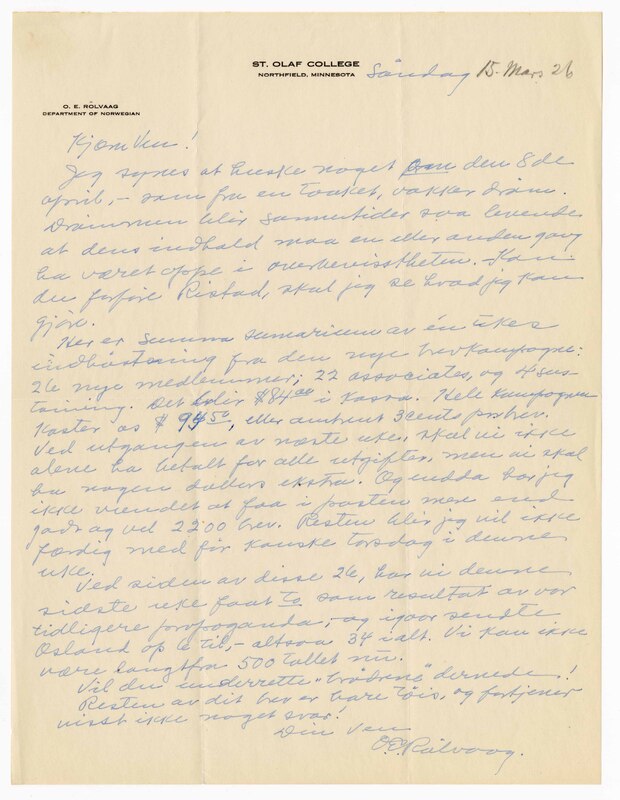 ST. OLAF COLLEGE
NORTHFIELD, MINNESOTA
Søndag 15. Mars 26
O. E. RÖLVAAG
DEPARTMENT OF NORWEGIAN
Kjære Ven!
Jeg synes at huske noget om den 8de
april, — som fra en taaket, vakker drøm.
Drømmen blir sommertider saa levende
at dens indhold maa en eller anden gang
ha været oppe i overbevisstheten. Kan
du forføre Ristad, skal jeg se hvad jeg kan
gjøre.
Her er summa sumarium av én ukes
indhøstning fra den nye brevkampagne:
26 nye medlemmer; 22 associates, og 4 sus-
taining. Det blir $84.00 i kassa. Hele kampagnen
koster os $ 94.50, eller omtrent 3 cents pr brev.
Ved utgangen av næste uke, skal vi ikke
alene ha betalt for alle utgifter, men vi skal
ha nogen dollars ekstra. Og endda har jeg
ikke vundet at faa i posten mere end
godt og vel 2200 brev. Resten blir jeg vil ikke
færdig med før kanske torsdag i denne
uke.
Ved siden av disse 26, har vi denne
sidste uke faat to som resultat av vor
tidligere propoganda, — og igaar sendte
Osland op 6 til, — altsaa 34 ialt. Vi kan ikke
være langt fra 500 tallet nu.
Vil du underrette "brødrene" dernede!
Resten av dit brev er bare tøis, og fortjener
visst ikke noget svar!
Din Ven
O.E. Rölvaag.